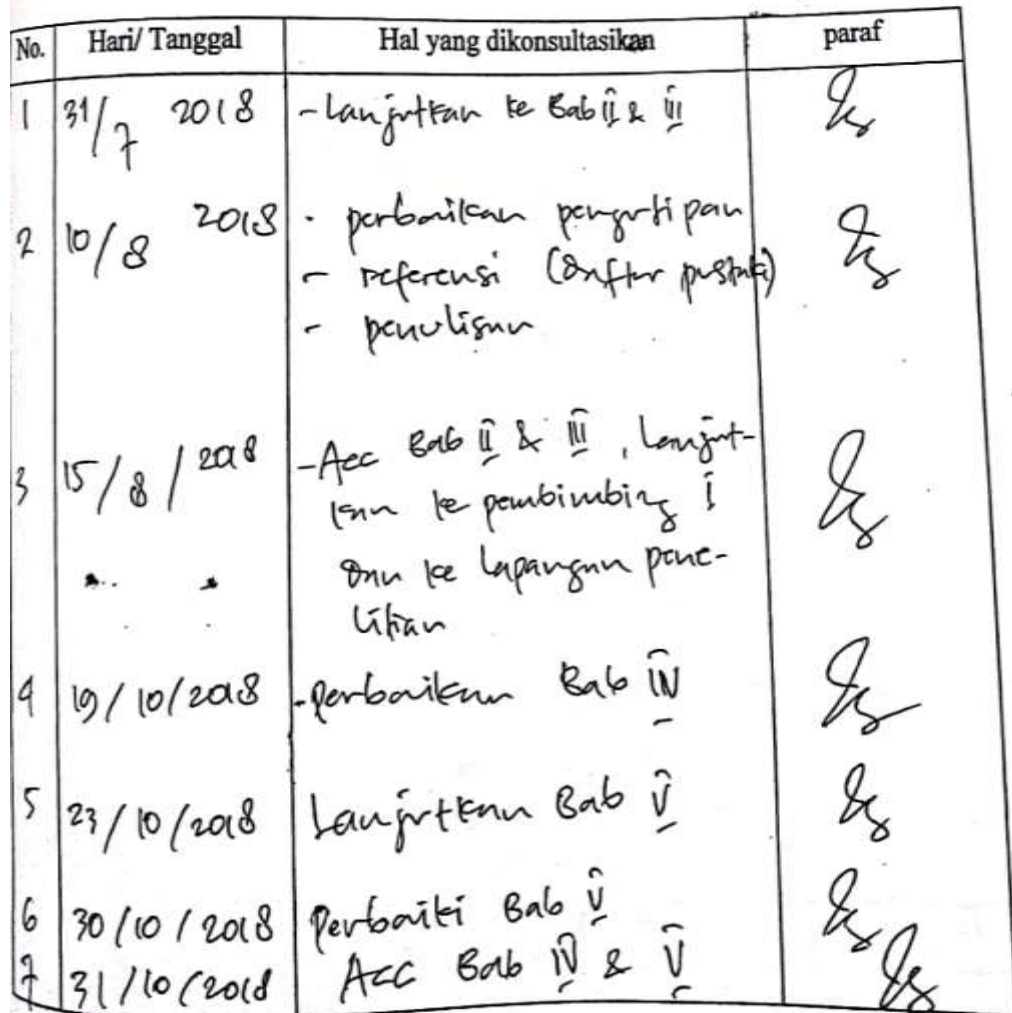 No. Hari/ Tanggal Hal yang dikonsultasikan paraf
1 31/7 2018 - Lanjutkan ke Bab II & III
2 10/8 2018 - perbaikan pengutipan
- referensi (daftar pustaka)
- penulisan
3 15/8/2018 - Acc Bab II & III, Lanjut-
kan ke pembimbing I
dan ke lapangan pene-
litian
4 19/10/2018 - perbaikan Bab IV
5 23/10/2018 Lanjutkan Bab V
6 30/10/2018 Perbaiki Bab V
7 31/10/2018 Acc Bab IV & V